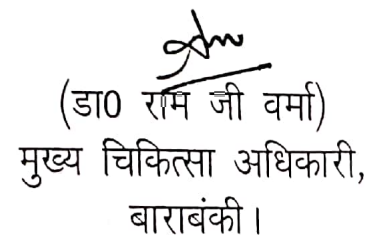 (डा0 राम जी वर्मा)
मुख्य चिकित्सा अधिकारी,
बाराबंकी।